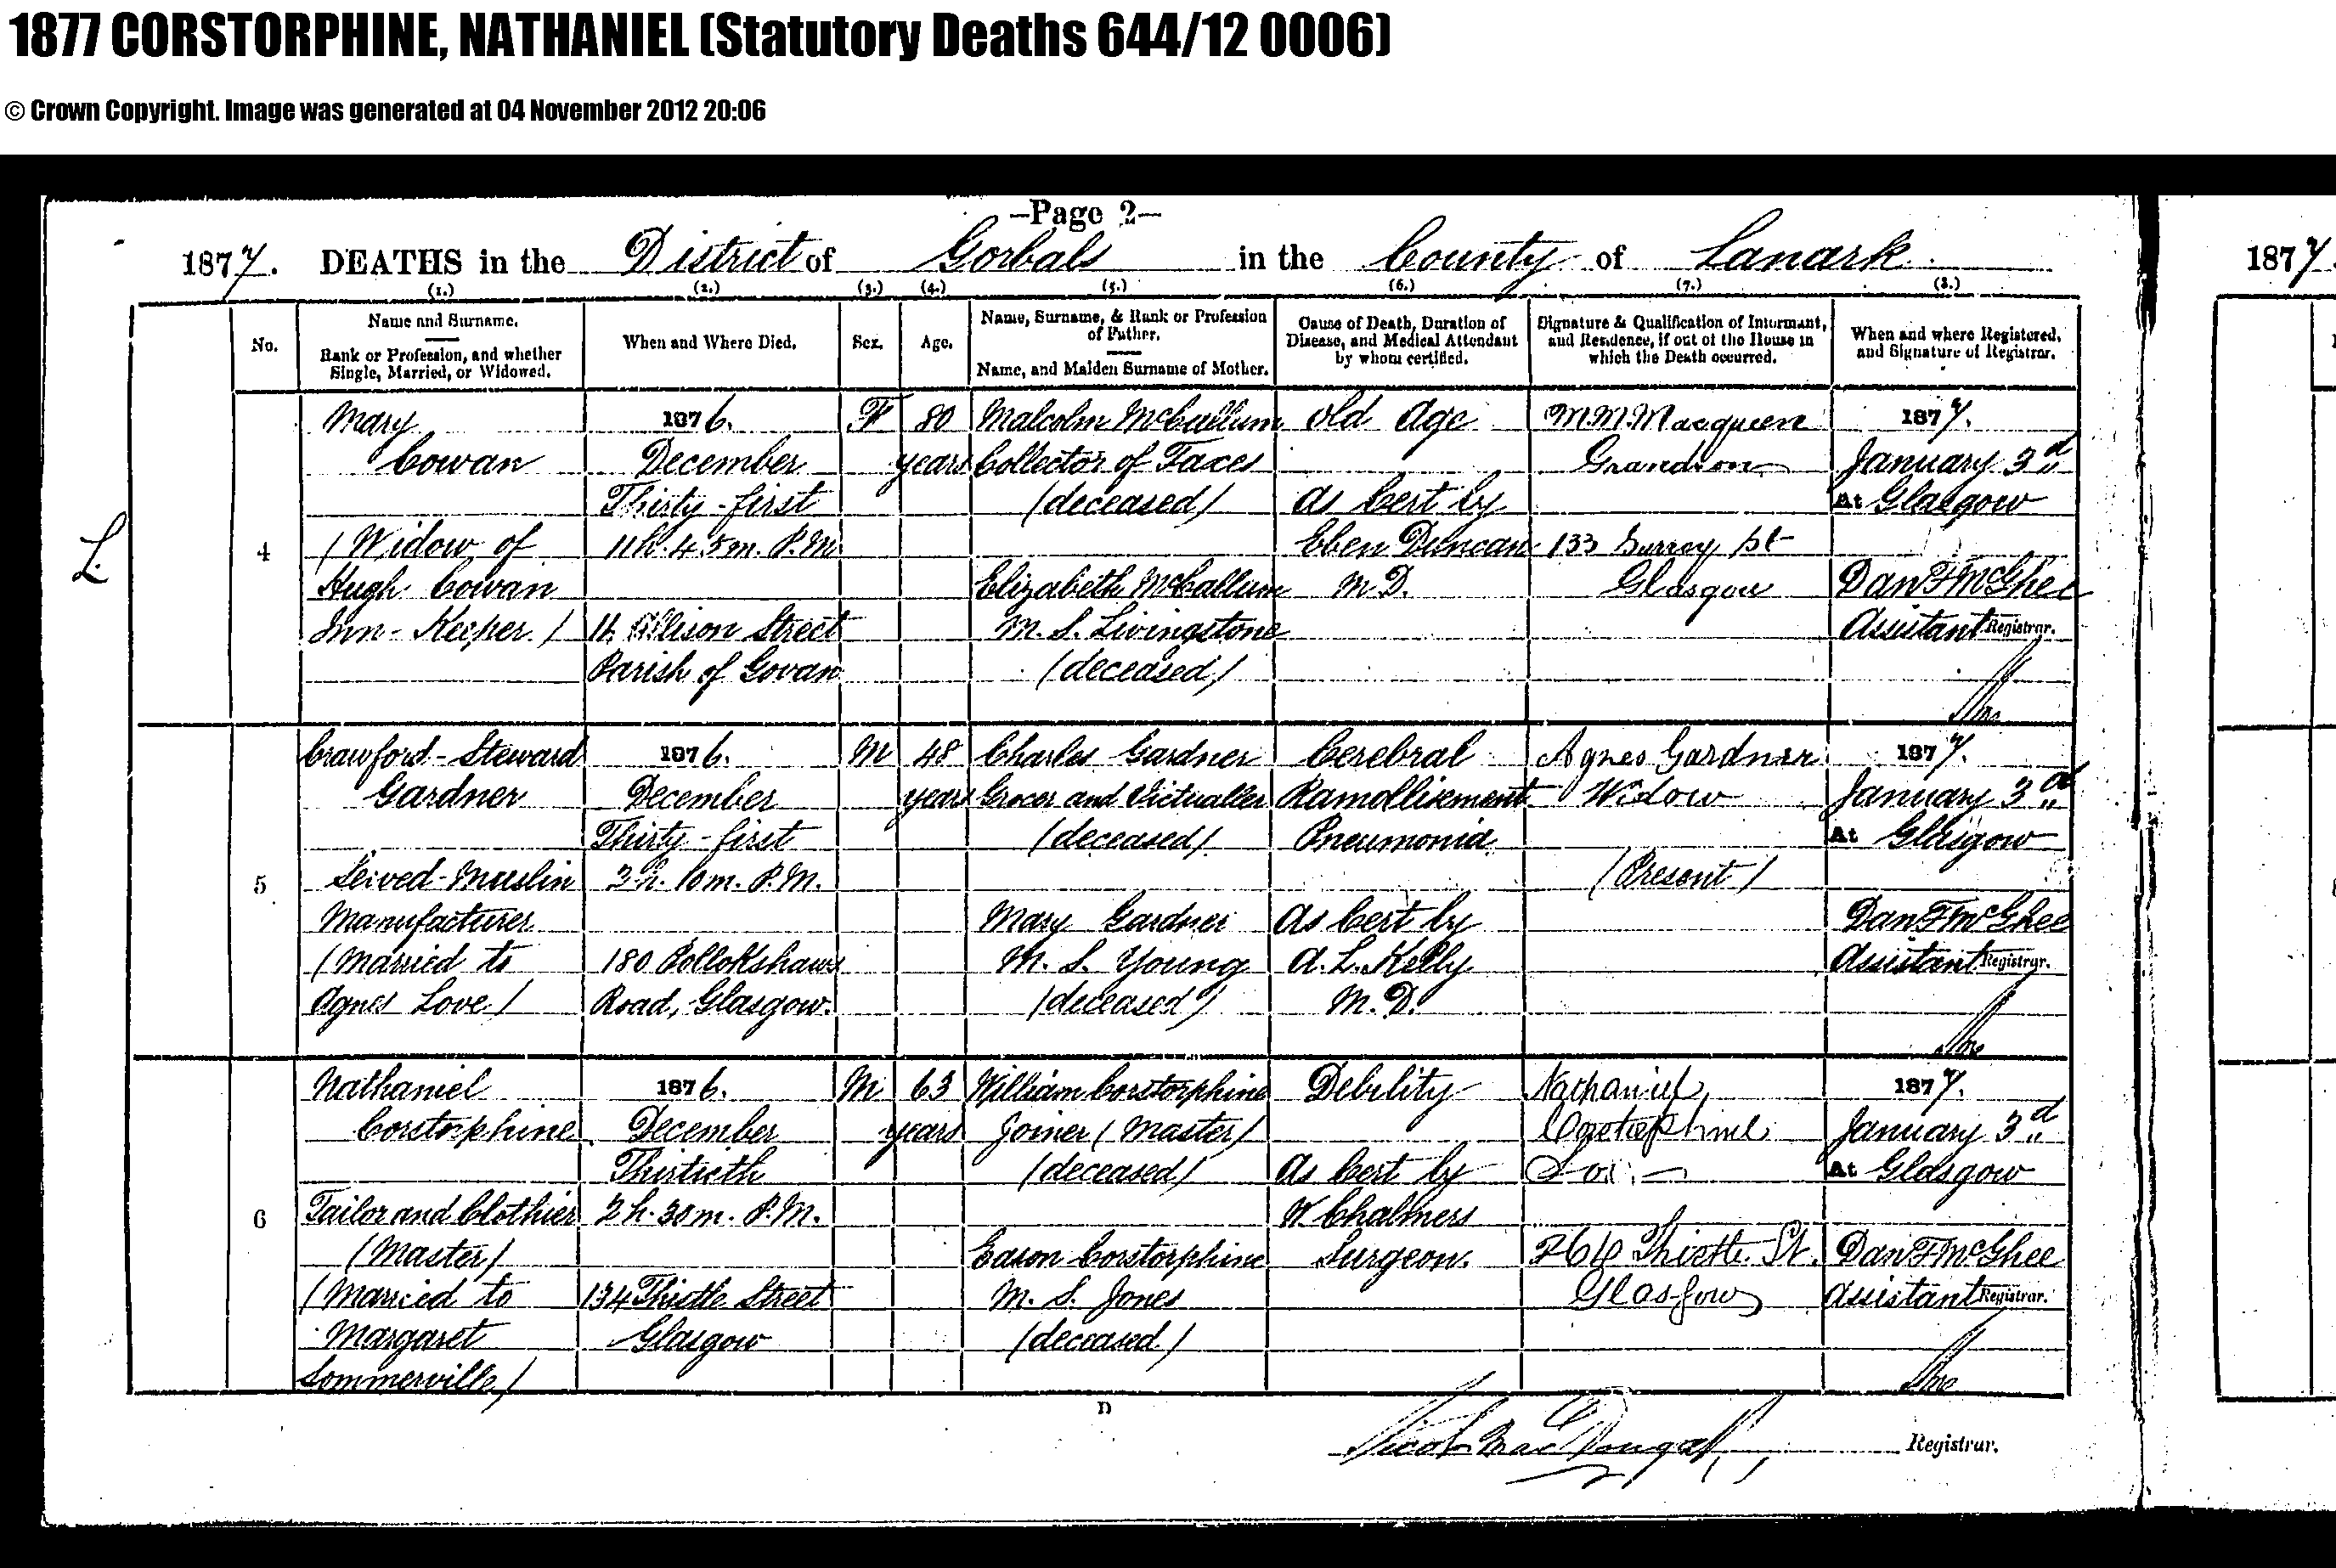 1877 CORSTORPHINE, NATHANIEL (Statutory Deaths 644/12 0006)
© Crown Copyright. Image was generated at 04 November 2012 20:06
—Page 2—
1877. DEATHS in the District of Gorbals in the County of Lanark
1877
(1.) (2.) (3.) (4.) (5.) (6.) (7.) (8.)
No.
Name and Surname.
Rank or Profession, and whether
Single, Married, or Widowed.
When and Where Died.
Sex.
Age.
Name, Surname, & Rank or Profession
of Father.
Name, and Maiden Surname of Mother.
Cause of Death, Duration of
Disease, and Medical Attendant
by whom certified.
Signature & Qualification of Informant,
and Residence, if out of the House in
which the Death occurred.
When and where Registered,
and Signature of Registrar.
L.
4
Mary
Cowan
(Widow of
Hugh Cowan
Inn-Keeper)
1876.
December
Thirty-first
11h. 45m. P.M.
Street
Parish of Govan
F
80
years
Malcolm McCallum
Collector of Taxes
(deceased)
Elizabeth McCallum
M.S. Livingstone
(deceased)
Old Age
As Cert by
Eben Duncan
M.D.
M.M. Macqueen
Grandson
133 Surrey St
Glasgow
1877.
January 3d
At Glasgow
Dan F McGhee
Assistant Registrar.
5
Crawford-Steward
Gardner
Sewed-Muslin
Manufacturer
(Married to
Agnes Love)
1876.
December
Thirty-first
3h. 10m. P.M.
180 Pollokshaws
Road, Glasgow.
M
48
years
Charles Gardner
Grocer and Victualler
(deceased)
Mary Gardner
M.S. Young
(deceased)
Cerebral
Ramollisement
Pneumonia
As Cert by
A.L. Kelly
M.D.
Agnes Gardner
Widow
(Present)
1877.
January 3d
At Glasgow
Dan F McGhee
Assistant Registrar.
6
Nathaniel
Corstorphine
Tailor and Clothier
(Master)
(Married to
Margaret
Sommerville)
1876.
December
Thirtieth
2h. 30m. P.M.
134 Thistle Street
Glasgow
M
63
years
William Corstorphine
Joiner (Master)
(deceased)
Eason Corstorphine
M.S. Jones
(deceased)
Debility
As Cert by
W Chalmers
Surgeon.
Nathaniel
Corstorphine
Son
Thistle St.
Glasgow
1877.
January 3d
At Glasgow
Dan F McGhee
Assistant Registrar.
D
MacDougall Registrar.